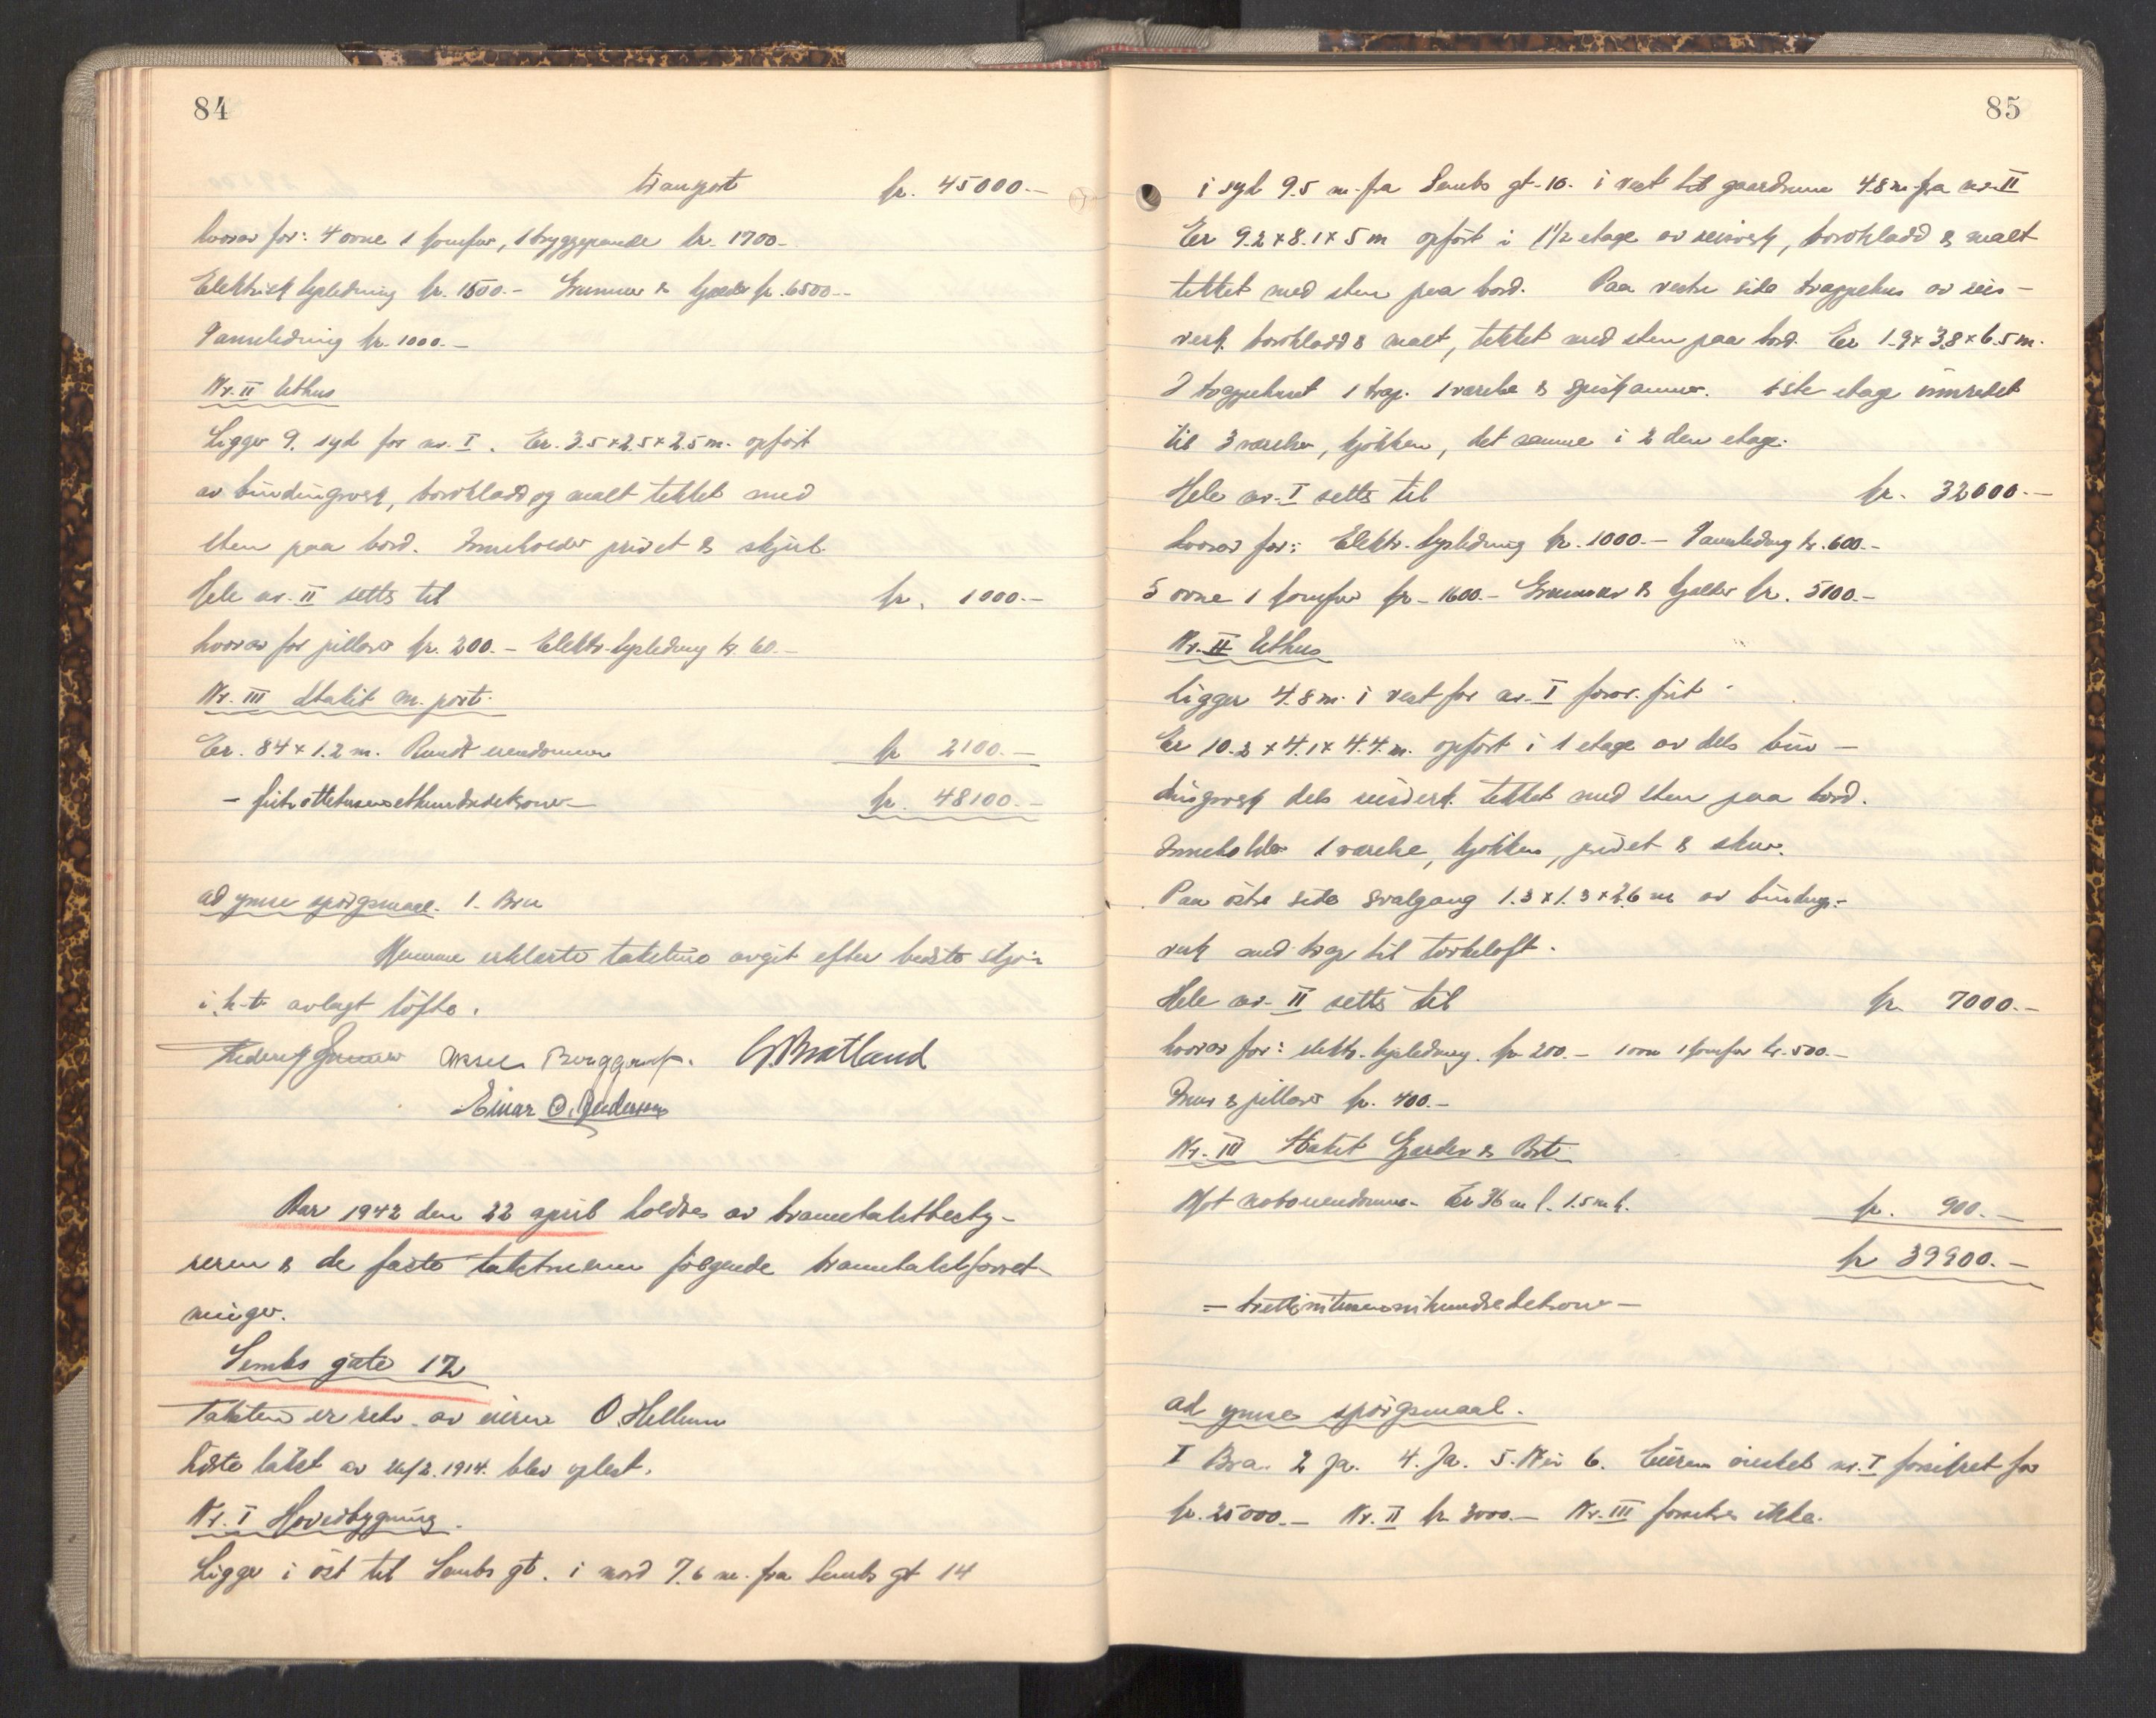 84
transport kr. 45000.-
hvorav for: 4 ovne 1 komfur, 1 bryggepande kr. 1700.-
Elektrisk lysledning kr. 1500.- Grunmur & kjælder kr. 6500.-
Vannledning kr. 1000.-
Nr. II Uthus
Ligger 9. syd for nr. I. Er. 3.5 x 2.5 x 2.5 m. opført
av bindingverk, bordkladd og malt tekket med
sten paa bord. Inneholder privet & skjul.
Hele nr. II settes til kr. 1000.-
hvorav for pillarer kr. 200.- Elektr. lysledning kr. 60.-
Nr. III Stakit m. port.
Er. 84 x 1.2 m. Rundt eiendommen kr 2100.-
- førtiottetusenetthundredekroner - kr. 48100.-
ad ymse spörgsmaal. 1. Bra
Mennene erklærte taksten avgit efter bedste skjön
i h.t. avlagt löfte.
Aksel Berggren G. Bratland
Einar O. Andersen
Aar 1942 den 22 april holdtes av branntakstbesty-
reren & de faste takstmenn følgende branntakstforret-
ninger.
Sembs gate 12
Taksten er rekv. av eieren O. Hellum
Siste takst av 26/2. 1914. blev oplest.
Nr. I Hovedbygning.
Ligger i öst til Sembs gt. i nord 7.6 m. fra Sembs gt 14
85
i syd 9.5 m. fra Sembs gt. 10. i vest til gaardsrum 4.8 m. fra nr. II
Er 9.2 x 8.1 x 5 m opført i 1 1/2 etage av reisverk, bordkladd & malt
tekket med sten paa bord. Paa vestre side trappehus av reis-
verk. bordkladd & malt, tekket med sten paa bord. Er 1.9 x 3.8 x 6.5 m.
I trappehuset 1 trap. 1 værelse & spiskammer. 1ste etage innredet
til 3 værelser, kjökken, det samme i 2den etage.
Hele nr. I settes til kr. 32000.-
hvorav for: Elektr. lysledning kr. 1000.- Vannledning kr. 600.-
5 ovne 1 komfur kr. 1600.- Grunmur & kjelder kr. 5100.-
Nr. II Uthus
Ligger 4.8 m. i vest for nr. I forøv. frit.
Er 10.2 x 4.1 x 4.4 m. opført i 1 etage av dels bin-
dingverk dels reisverk. tekket med sten paa bord.
Inneholder 1 værelse, kjökken, privet & skur.
Paa östre side svalgang 1.3 x 1.3 x 2.6 m av bindings-
verk med trap til törkeloft.
Hele nr. II settes til kr 7000.-
hvorav for: elektr. lysledning. kr 200.- 1 ovn 1 komfur kr. 500.-
Mur & pillarer kr. 400.-
Nr. III Stakit Gjerder & Port
Mot naboeiendomme. Er 36 m l. 1.5 m h. kr. 900.-
kr 39900.-
- trettinitusennihundredekroner -
ad ymse spörgsmaal.
I Bra. 2 Ja. 4. Ja. 5. Nei 6. Eieren önsket nr. I forsikret for
kr. 25000.- Nr. II kr 3000.- Nr. III forsikres ikke.